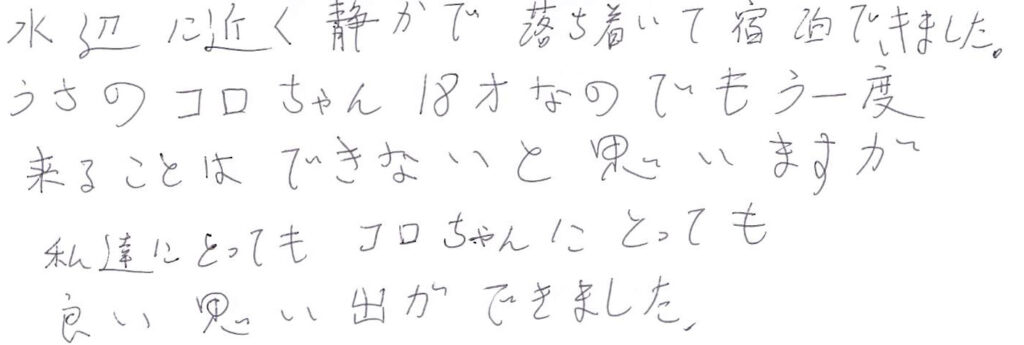 水辺に近く静かで落ち着いて宿泊できました。
うさのコロちゃん18才なのでもう一度
来ることはできないと思いますが
私達にとってもコロちゃんにとっても
良い思い出ができました。